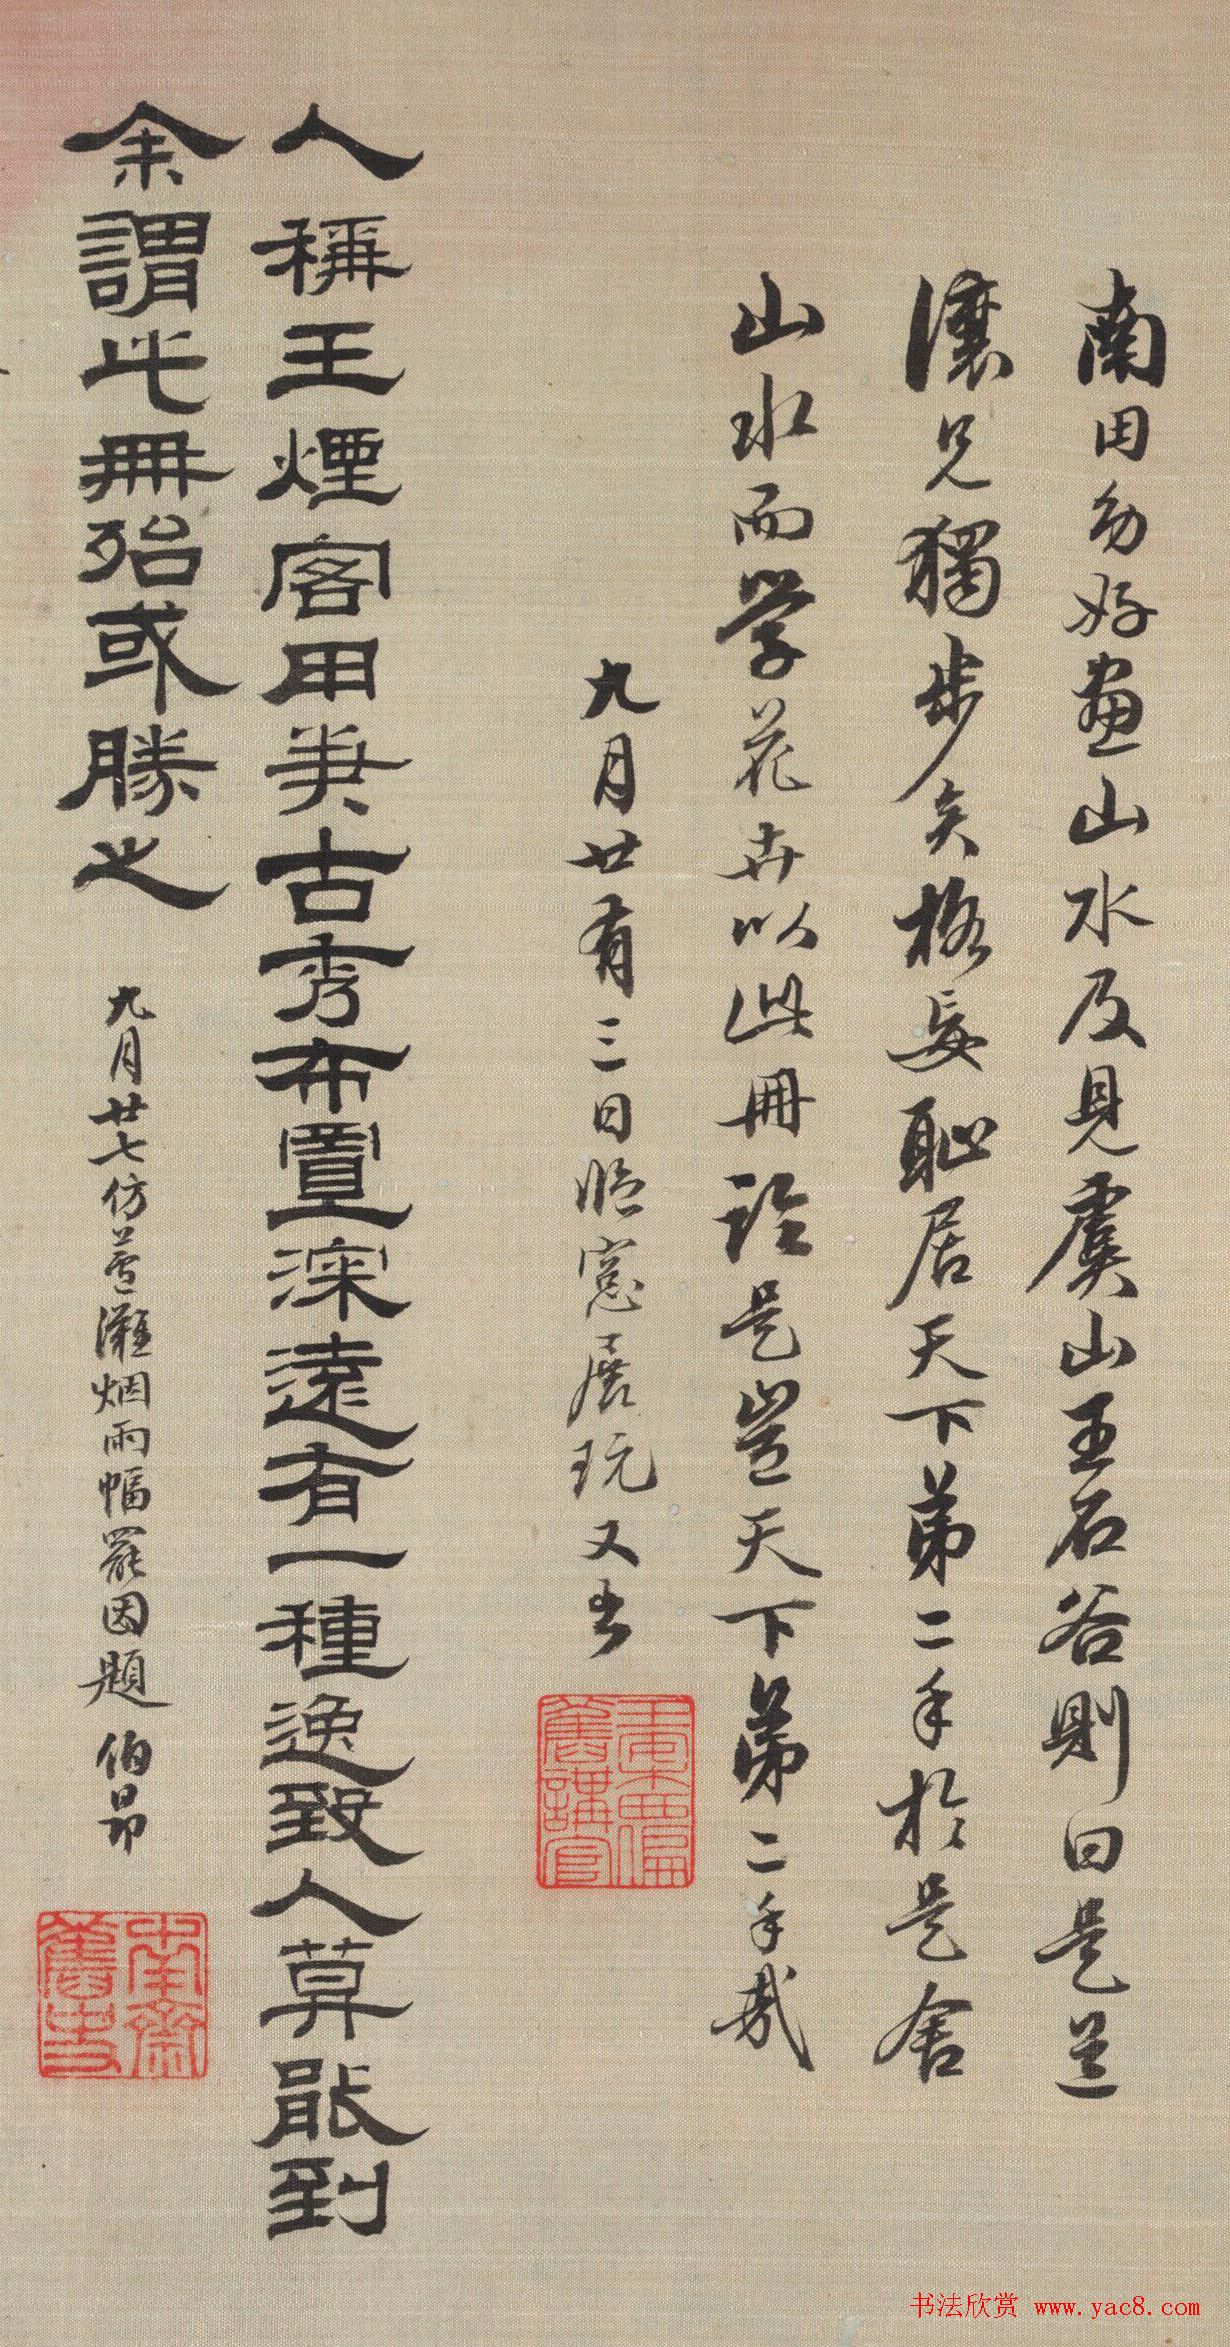 南田幼好畫山水及見虞山王石谷則曰是道
讓兄獨步矣格妄恥居天下第二手於是舍
山水而学花卉以此冊論是豈天下第二手哉
九月廿有三日臨窓展玩又書
人稱王煙客用筆古秀布置深遠有一種逸致人莫能到
余謂此冊殆或勝之
九月廿七仿蘆灘烟雨幅罷因題 伯昂
南齋
舊史
舊講官
书法欣赏 www.yac8.com